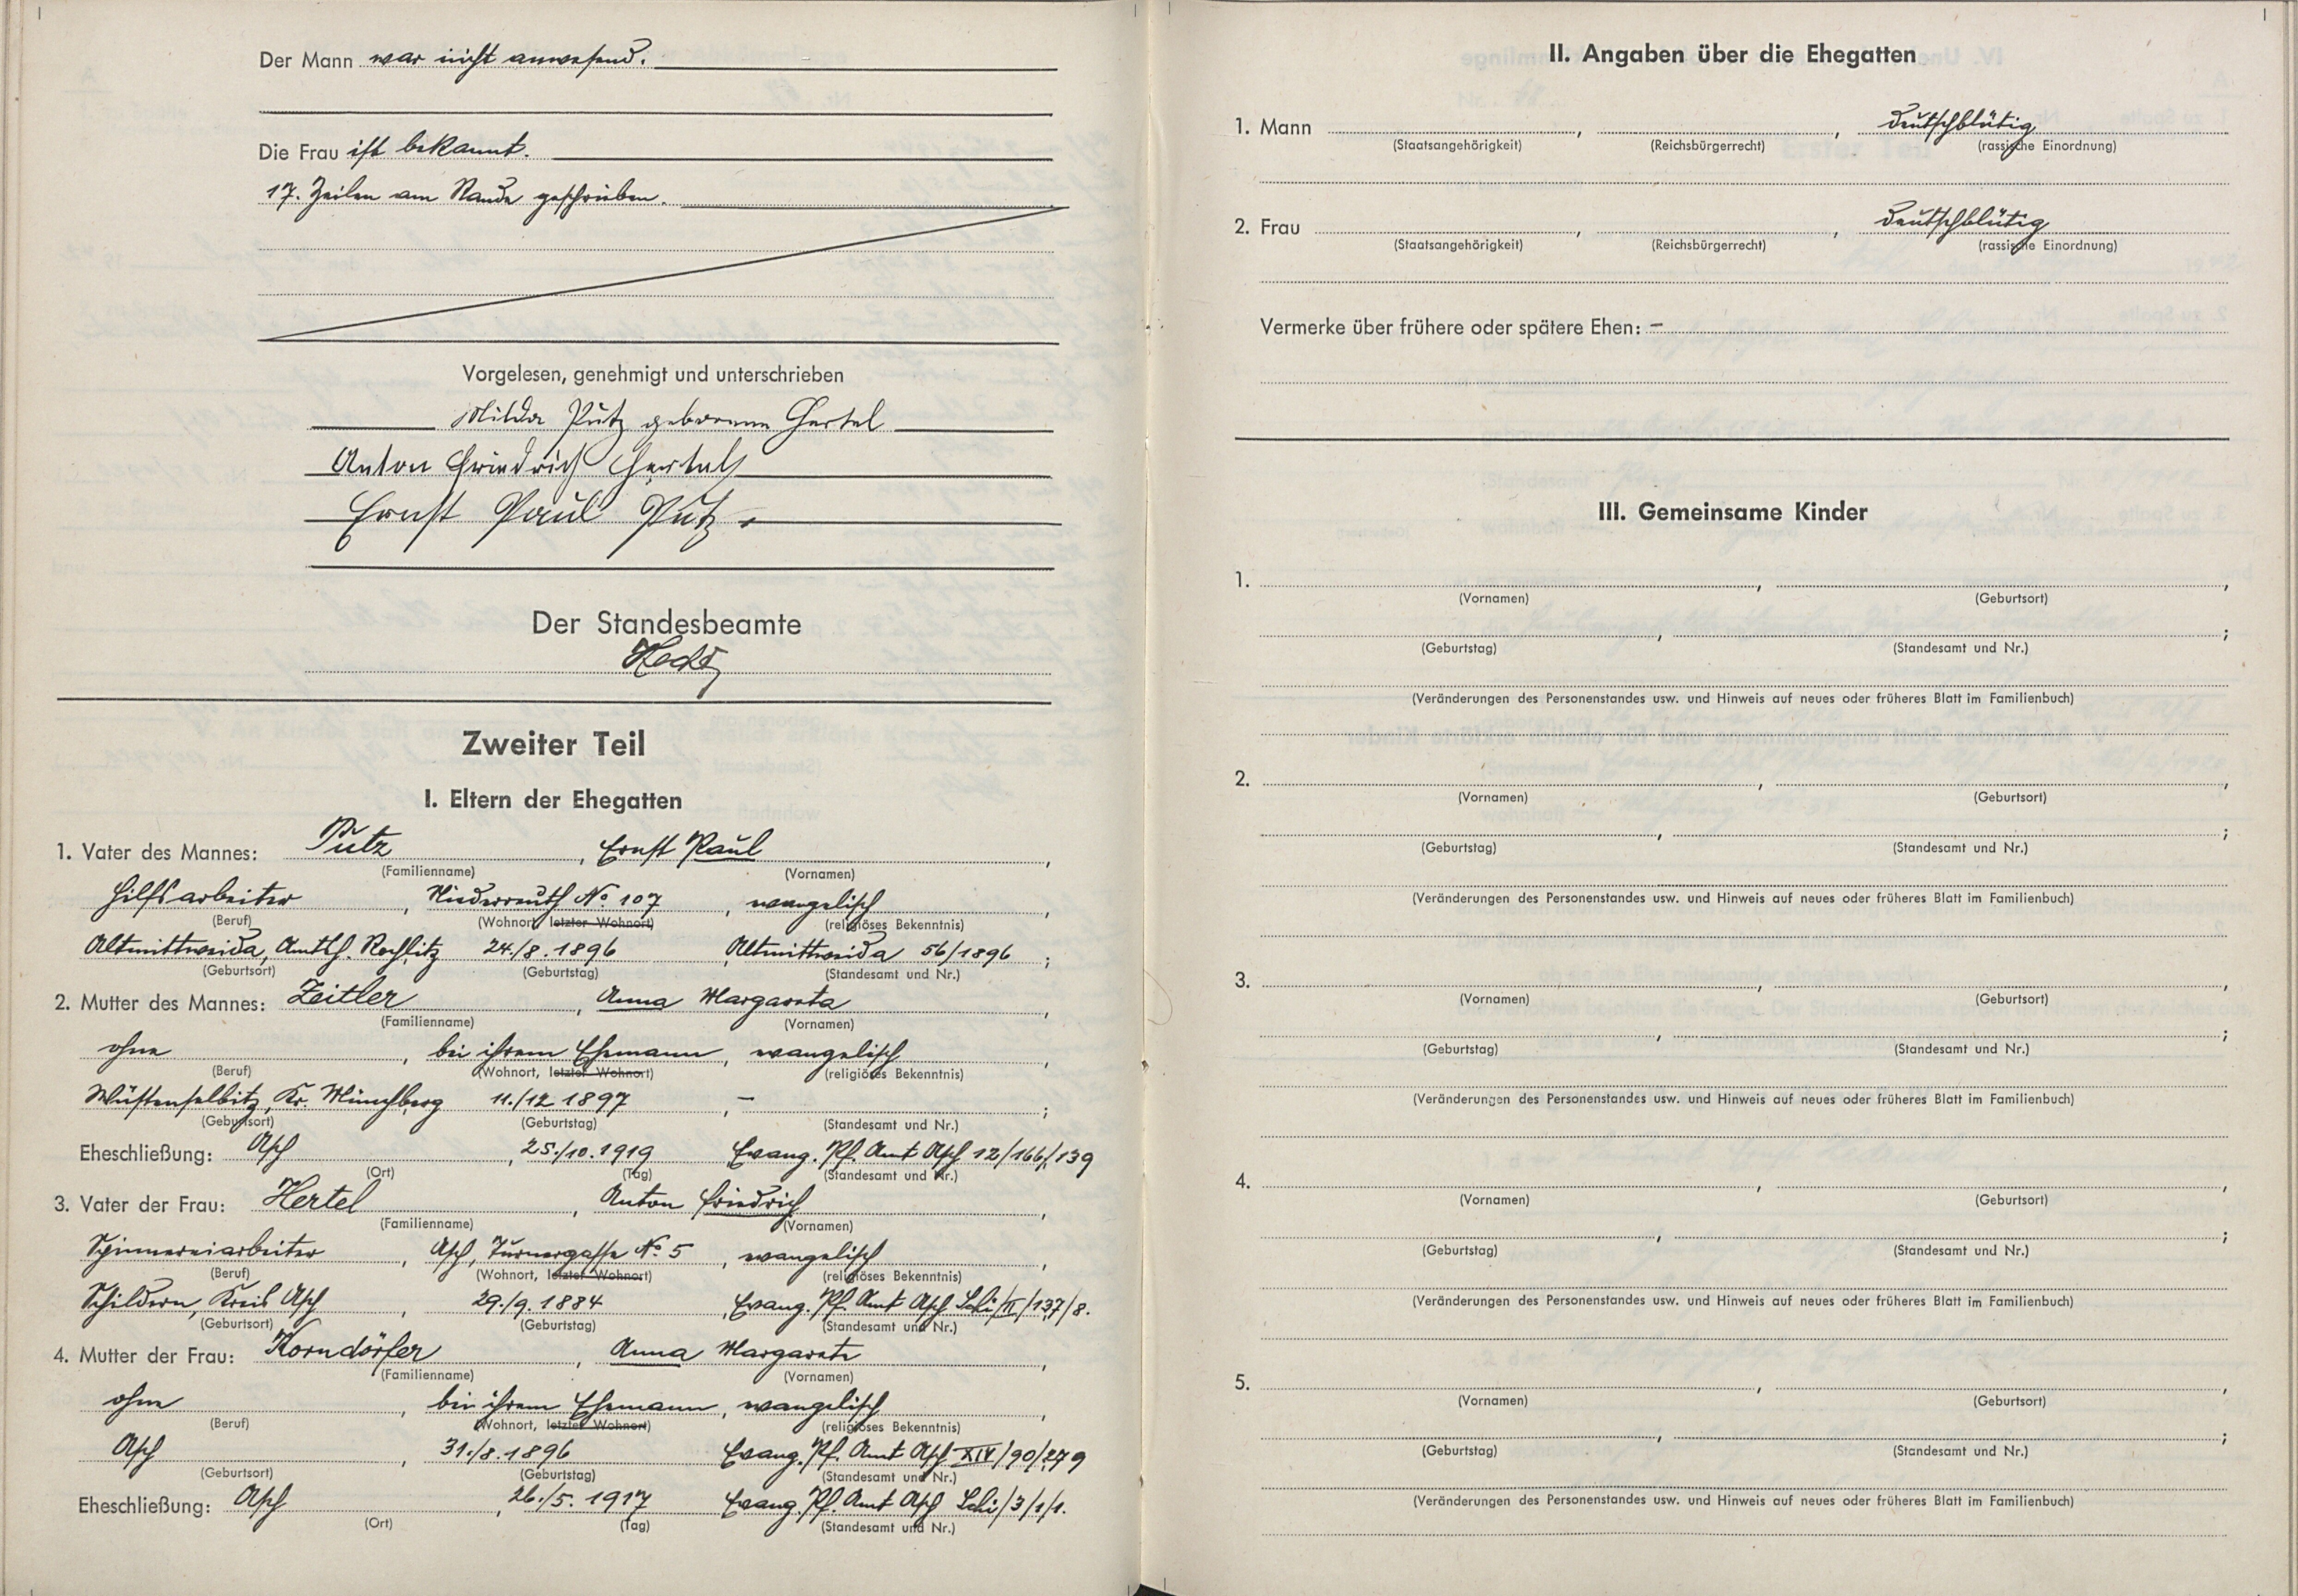 Der Mann war nicht anwesend.
Die Frau ist bekannt.
17. Zeilen am Rande geschrieben.
Vorgelesen, genehmigt und unterschrieben
Milda Putz geborene Hertel
Anton Friedrich Hertel
Ernst Paul Putz
Der Standesbeamte
Zweiter Teil
I. Eltern der Ehegatten
1. Vater des Mannes: Putz, Ernst Paul,
(Familienname) (Vornamen)
Hilfsarbeiter, Niederreuth No. 107, evangelisch,
(Beruf) (Wohnort, letzter Wohnort) (religiöses Bekenntnis)
Altmittweida, Amtsh. Rochlitz 24./8.1896, Altmittweida 56/1896;
(Geburtsort) (Geburtstag) (Standesamt und Nr.)
2. Mutter des Mannes: Zeitler, Anna Margareta,
(Familienname) (Vornamen)
ohne, bei ihrem Ehemann, evangelisch,
(Beruf) (Wohnort, letzter Wohnort) (religiöses Bekenntnis)
Wüstenselbitz, Kr. Münchberg 11./12.1897, –;
(Geburtsort) (Geburtstag) (Standesamt und Nr.)
Eheschließung: Asch, 25./10.1919, Evang. Pf. Amt Asch 12/166/139
(Ort) (Tag) (Standesamt und Nr.)
3. Vater der Frau: Hertel, Anton Friedrich,
(Familienname) (Vornamen)
Spinnereiarbeiter, Asch, Turnergasse No. 5, evangelisch,
(Beruf) (Wohnort, letzter Wohnort) (religiöses Bekenntnis)
Schildern, Kreis Asch, 29./9.1884, Evang. Pf. Amt Asch Schi/II/137/8.
(Geburtsort) (Geburtstag) (Standesamt und Nr.)
4. Mutter der Frau: Korndörfer, Anna Margarete,
(Familienname) (Vornamen)
ohne, bei ihrem Ehemann, evangelisch,
(Beruf) (Wohnort, letzter Wohnort) (religiöses Bekenntnis)
Asch, 31./8.1896 Evang. Pf. Amt Asch XIV/90/279
(Geburtsort) (Geburtstag) (Standesamt und Nr.)
Eheschließung: Asch, 26./5.1917 Evang. Pf. Amt Asch Schi/3/1/1.
(Ort) (Tag) (Standesamt und Nr.)
II. Angaben über die Ehegatten
1. Mann , , deutschblütig
(Staatsangehörigkeit) (Reichsbürgerrecht) (rassische Einordnung)
2. Frau , , deutschblütig
(Staatsangehörigkeit) (Reichsbürgerrecht) (rassische Einordnung)
Vermerke über frühere oder spätere Ehen: –
III. Gemeinsame Kinder
1. , ,
(Vornamen) (Geburtsort)
, ;
(Geburtstag) (Standesamt und Nr.)
(Veränderungen des Personenstandes usw. und Hinweis auf neues oder früheres Blatt im Familienbuch)
2. , ,
(Vornamen) (Geburtsort)
, ;
(Geburtstag) (Standesamt und Nr.)
(Veränderungen des Personenstandes usw. und Hinweis auf neues oder früheres Blatt im Familienbuch)
3. , ,
(Vornamen) (Geburtsort)
, ;
(Geburtstag) (Standesamt und Nr.)
(Veränderungen des Personenstandes usw. und Hinweis auf neues oder früheres Blatt im Familienbuch)
4. , ,
(Vornamen) (Geburtsort)
, ;
(Geburtstag) (Standesamt und Nr.)
(Veränderungen des Personenstandes usw. und Hinweis auf neues oder früheres Blatt im Familienbuch)
5. , ,
(Vornamen) (Geburtsort)
, ;
(Geburtstag) (Standesamt und Nr.)
(Veränderungen des Personenstandes usw. und Hinweis auf neues oder früheres Blatt im Familienbuch)